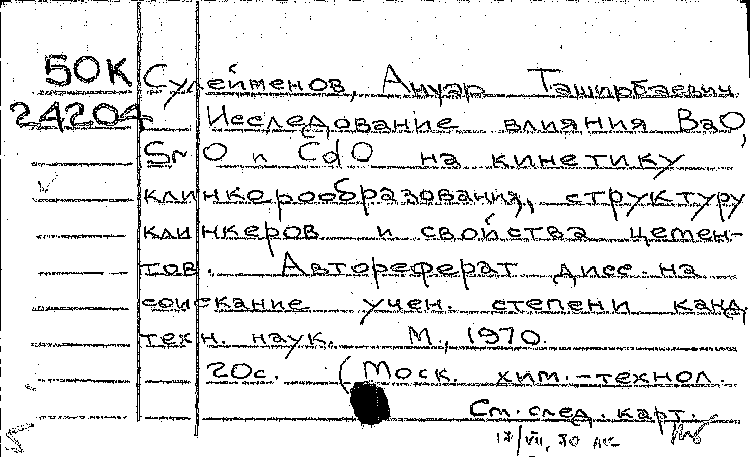 50К Сулейменов, Ануар Таширбаевич
24204 Исследование влияния BaO,
SrO и CdO на кинетику
клинкерообразования, структуру
клинкеров и свойства цемен-
тов. Автореферат дисс. на
соискание учен. степени канд.
техн. наук. М., 1970.
20с. (Моск. хим.-технол.
См. след. карт.